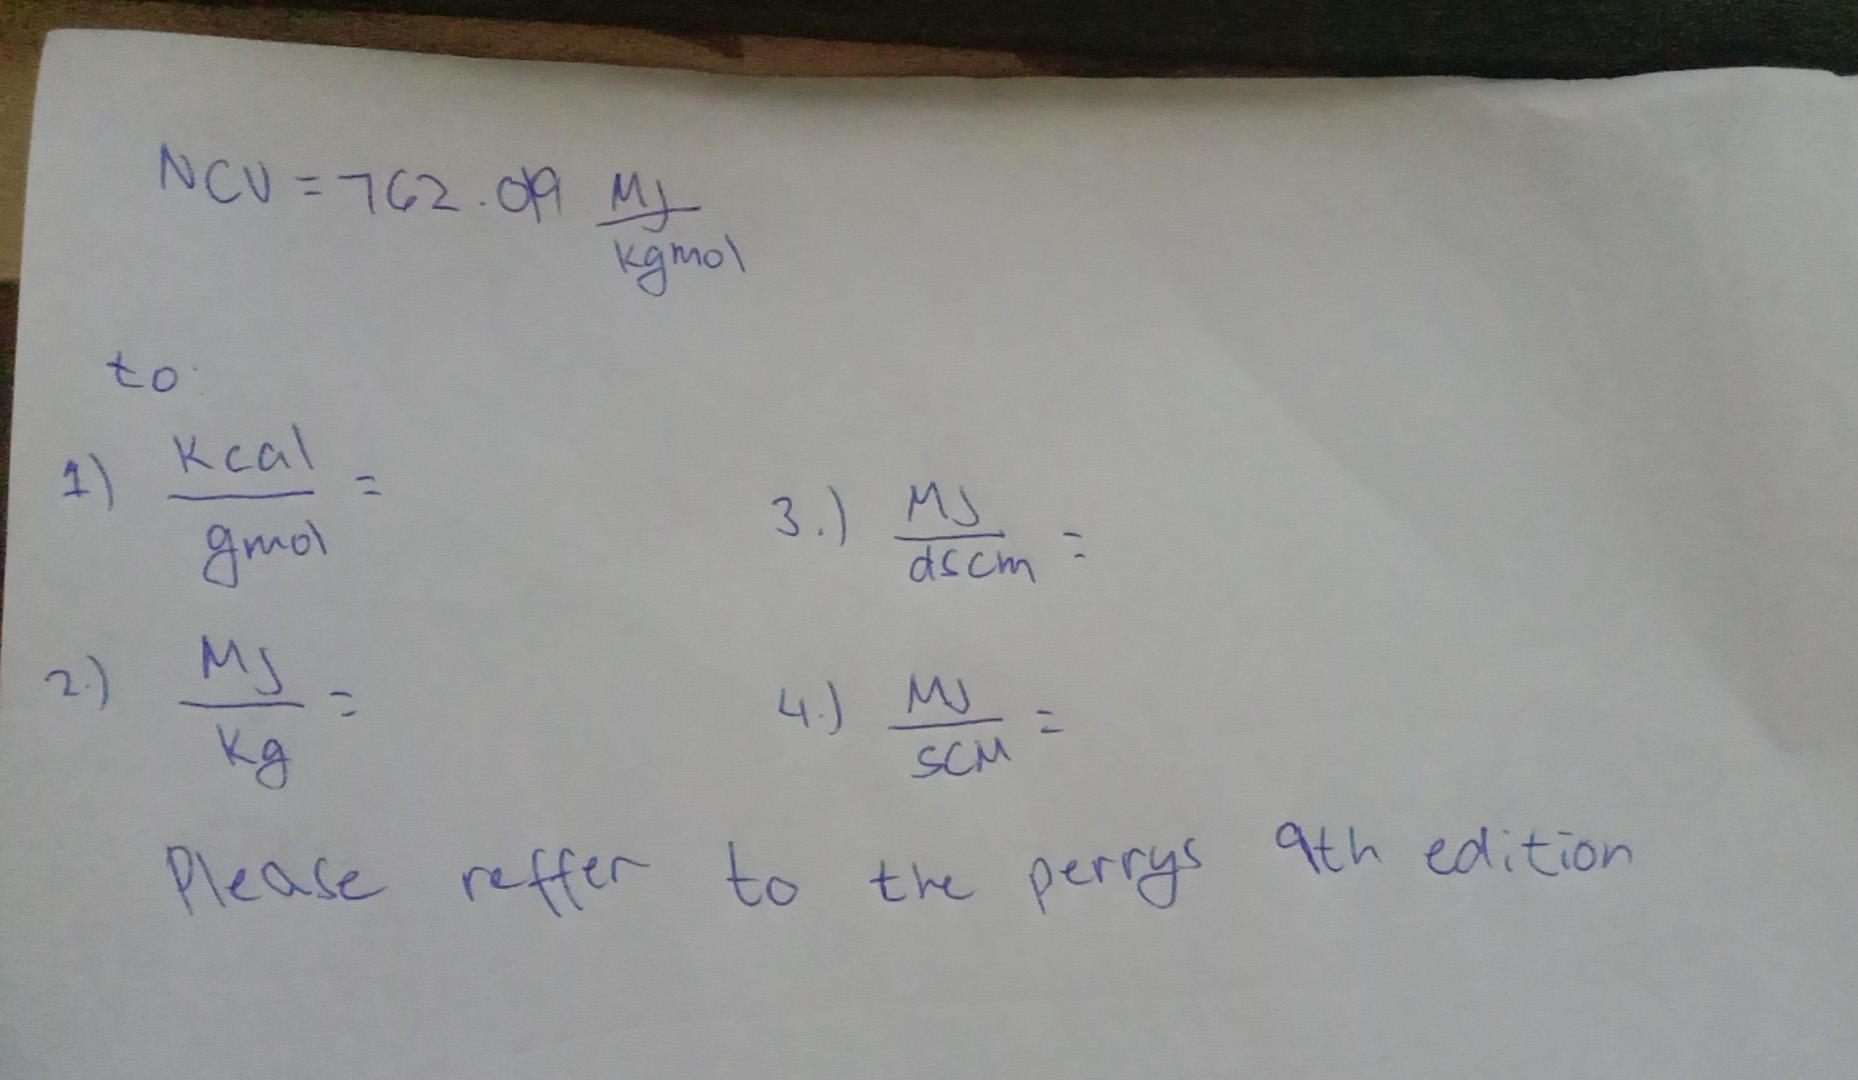 NCV = 762.019 MJ/kgmol
to
1) Kcal/gmol =
2.) MJ/kg =
3.) MJ/dscm =
4.) MJ/SCM =
Please reffer to the perrys 9th edition